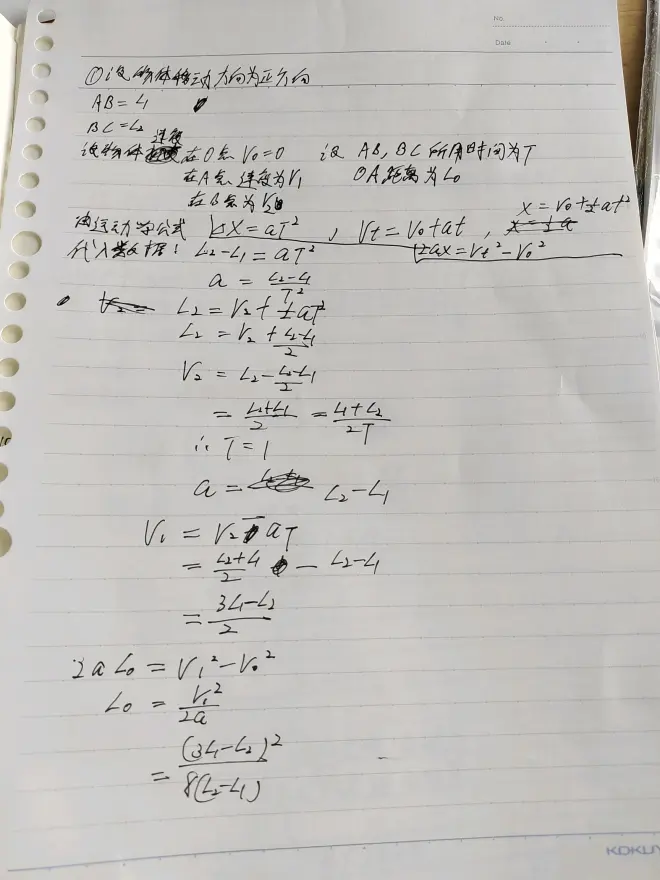 No.
Date
①设物体移动方向为正方向
AB=L₁
BC=L₂
速度
设物体 在O点 V₀=0 设 AB,BC所用时间为T
在A点 速度为V₁ OA距离为L₀
在B点为V₂
X=V₀+½at²
由运动学公式 △X=aT² , Vt=V₀+at ,
代入数据: L₂-L₁=aT² 2ax=Vt²-V₀²
a=(L₂-L₁)/T²
L₂=V₂+½aT²
L₂=V₂+(L₂-L₁)/2
V₂=L₂-(L₂-L₁)/2
=(L₂+L₁)/2=(L₁+L₂)/2T
∴T=1
a= L₂-L₁
V₁=V₂-aT
=(L₂+L₁)/2 - L₂-L₁
=(3L₁-L₂)/2
2aL₀=V₁²-V₀²
L₀=V₁²/2a
=(3L₁-L₂)²/8(L₂-L₁)
KOKUY